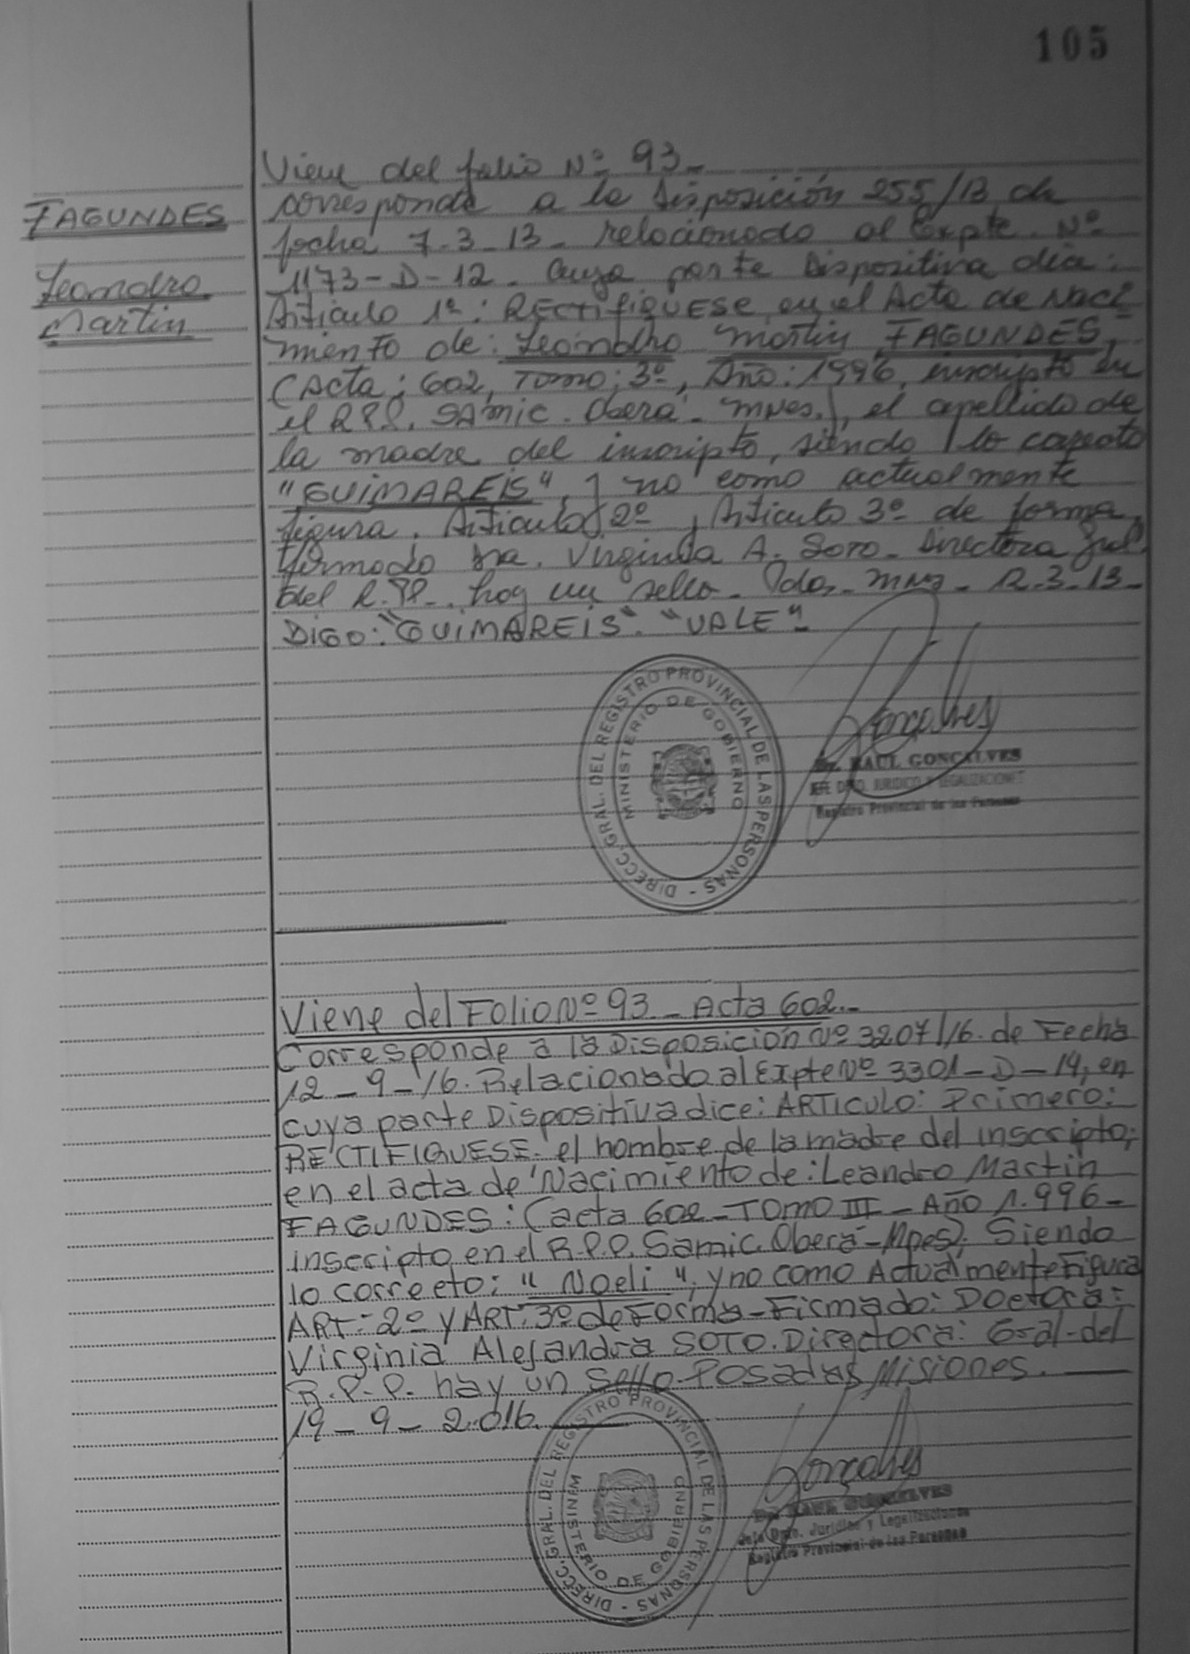 105
FAGUNDES
Leandro
Martin
Viene del folio Nº 93-
corresponde a la Disposición 255/13 de
fecha 7-3-13- relacionado al Expte. Nº
1173-D-12. Cuya parte Dispositiva dice:
Artículo 1º: RECTIFIQUESE en el Acta de Naci
miento de: Leandro Martin FAGUNDES,
(Acta: 602, Tomo: 3º, Año: 1996, inscripto en
el RPP. SAMIC. Oberá - Mnes.), el apellido de
la madre del inscripto, siendo lo correcto
"GUIMAREIS", y no como actualmente
figura. Articulo 2º y Articulo 3º de forma,
firmado Dra. Virginia A. Soto - Directora Gral.
del R.PP-. hay un sello. Pdas.- Mnes - 12-3-13-
DIGO: "GUIMAREIS". "VALE"-
DIRECC. GRAL. DEL REGISTRO PROVINCIAL DE LAS PERSONAS -
MINISTERIO DE GOBIERNO
Gonçalves
RAUL GONCALVES
JEFE DPTO. JURIDICO Y LEGALIZACIONES
Registro Provincial de las Personas
Viene del Folio Nº 93 - Acta 602.-
Corresponde a la Disposicion Nº 3207/16. de Fecha
12-9-16. Relacionado al Expte Nº 3301-D-14, en
cuya parte Dispositiva dice: ARTICULO: Primero:
RECTIFIQUESE. el nombre de la madre del inscripto;
en el acta de Nacimiento de: Leandro Martin
FAGUNDES: (acta 602-TOMO III - AÑO 1.996-
inscripto en el R.P.P. Samic. Oberá-Mnes). Siendo
lo correcto: "Noeli", y no como Actualmente Figura
ART- 2º y ART. 3º de Forma - Firmado: Doctora:
Virginia Alejandra SOTO. Directora: Gral-del
R.P.P. hay un Sello. Posadas Misiones.
19-9-2.016.
DIRECC. GRAL. DEL REGISTRO PROVINCIAL DE LAS PERSONAS -
MINISTERIO DE GOBIERNO
Gonçalves
RAUL GONCALVES
Jefe Dpto. Jurídico y Legalizaciones
Registro Provincial de las Personas